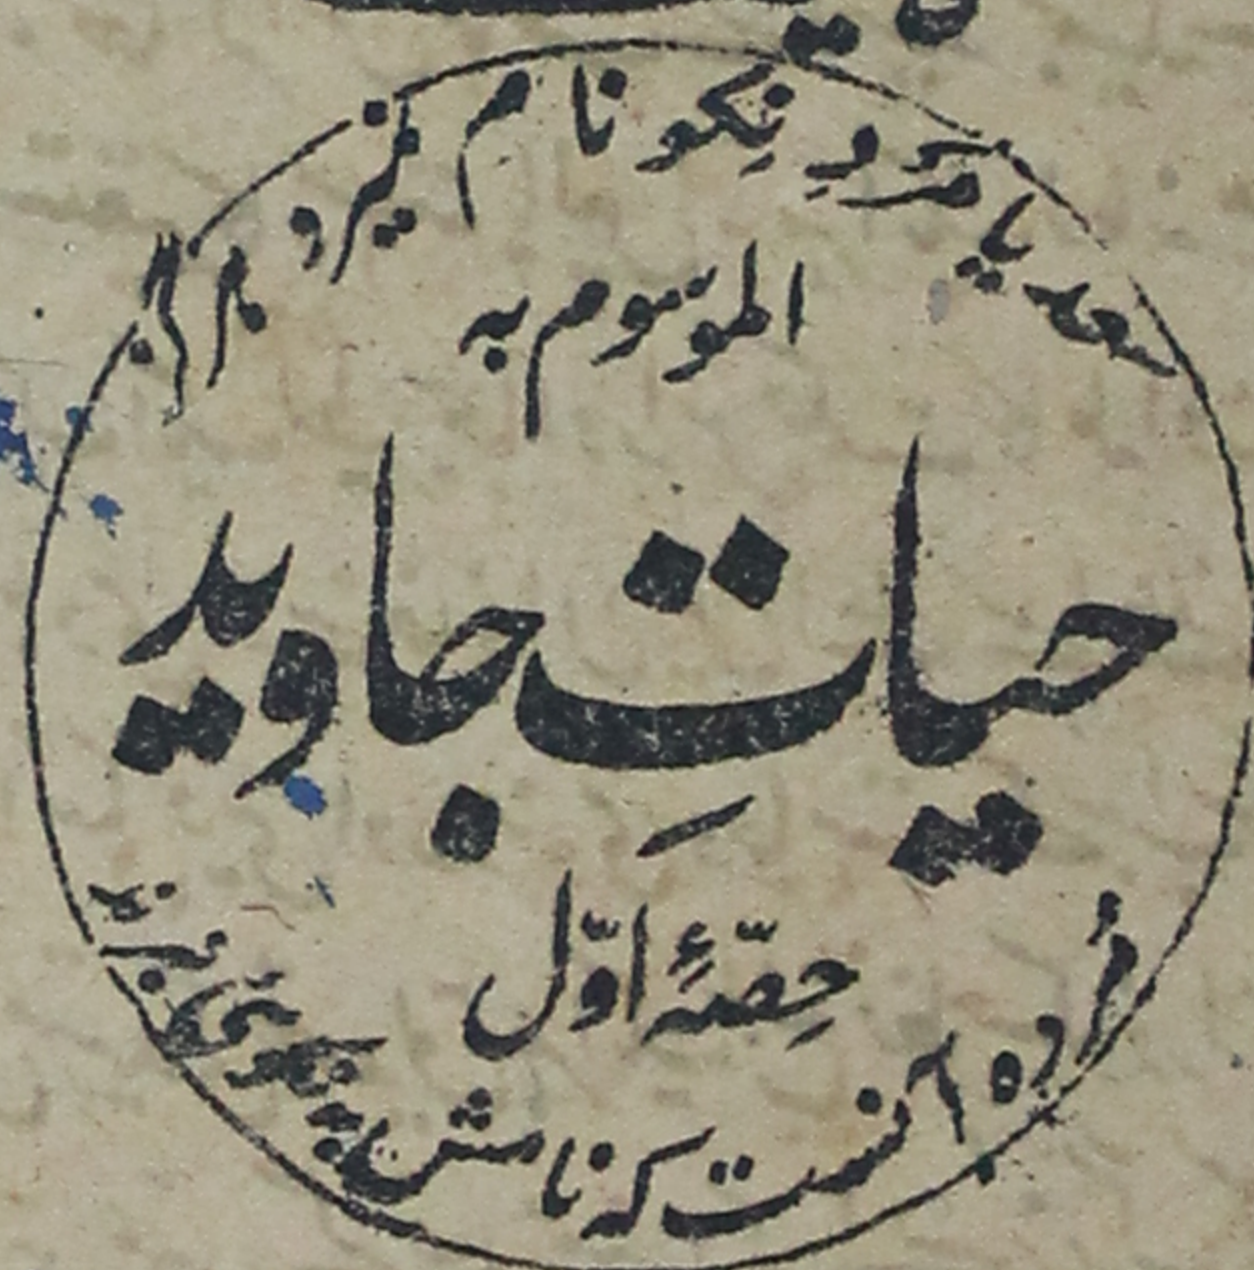 سعدیا مردِ نِکو نام نمیرد ہرگز
الموسوم بہ
حیاتِ جاوید
حِصّۂ اوّل
مُردہ آنست کہ نامش بہ نکوئی نبرند